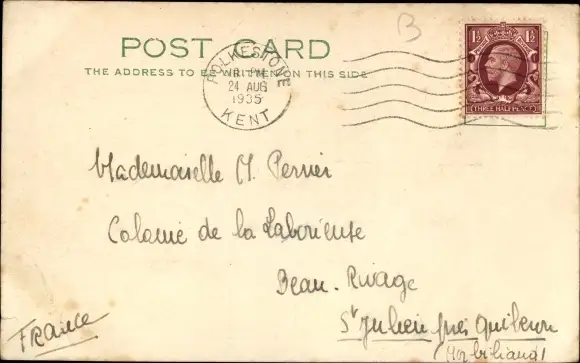 B
POST CARD
THE ADDRESS TO BE WRITTEN ON THIS SIDE
FOLKESTONE
PM
24 AUG
1935
KENT
1½ 1½
THREE HALFPENCE
Mademoiselle M. Perrier
Colonie de la Laborieuse
Beau-Rivage
St Julien près Quiberon
(Morbihand)
France